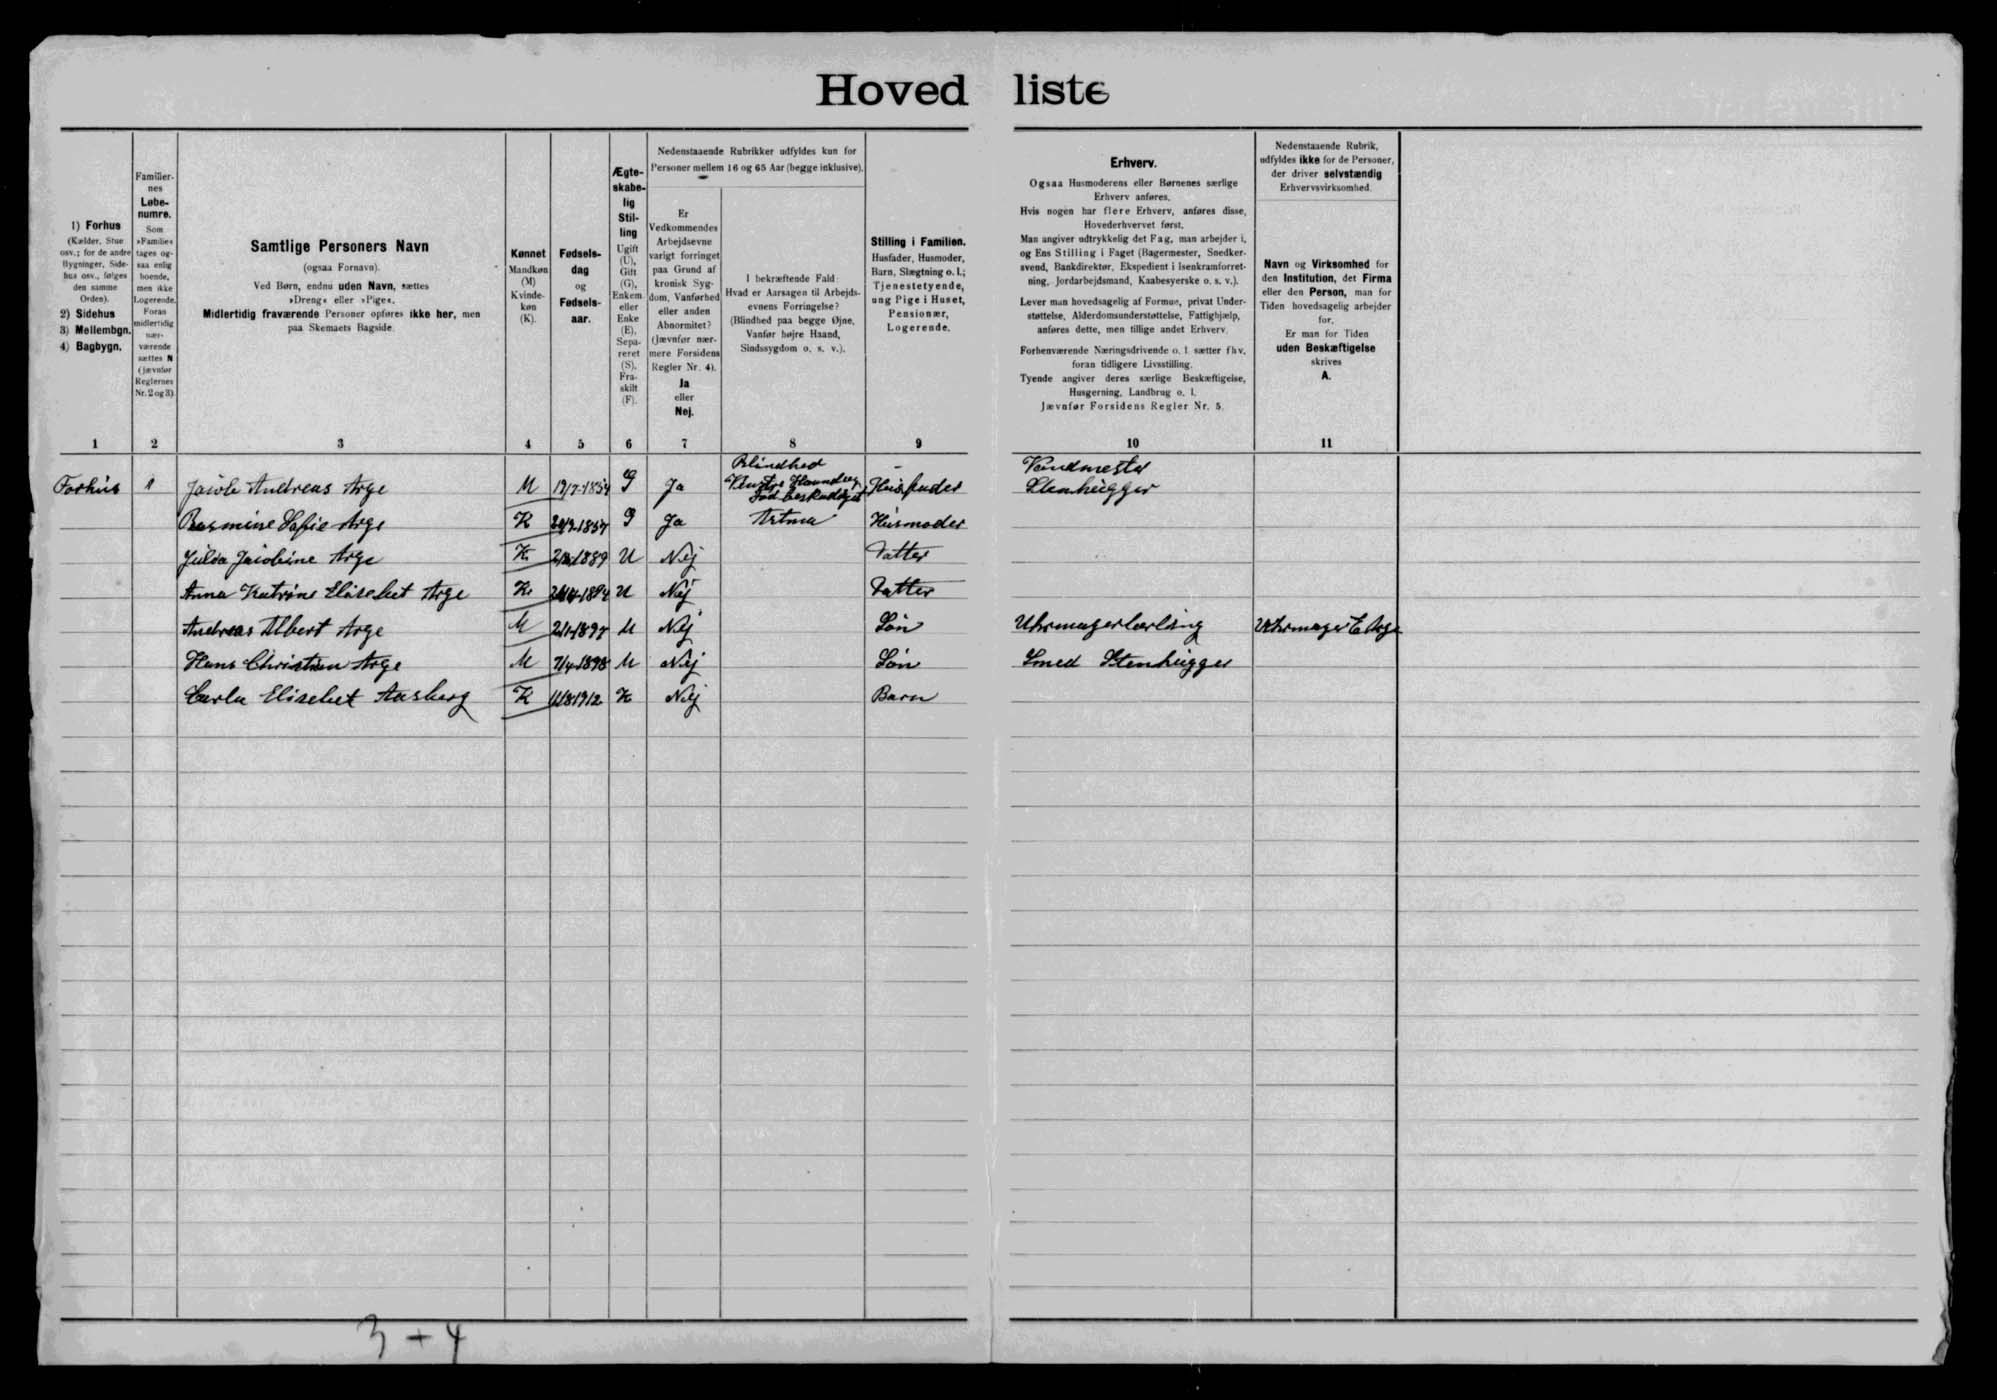 Hovedliste
1) Forhus
(Kælder, Stue
osv.; for de andre
Bygninger, Side-
hus osv., følges
den samme
Orden).
2) Sidehus
3) Mellembgn.
4) Bagbygn.
Familier-
nes
Løbe-
numre.
Som
»Familie«
tages og-
saa enlig
boende,
men ikke
Logerende.
Foran
midlertidig
nær-
værende
sættes N
(jævnfør
Reglernes
Nr. 2 og 3)
Samtlige Personers Navn
(ogsaa Fornavn).
Ved Børn, endnu uden Navn, sættes
»Dreng« eller »Pige«.
Midlertidig fraværende Personer opføres ikke her, men
paa Skemaets Bagside.
Kønnet
Mandkøn
(M)
Kvinde-
køn
(K).
Fødsels-
dag
og
Fødsels-
aar.
Ægte-
skabe-
lig
Stil-
ling
Ugift
(U),
Gift
(G),
Enkem.
eller
Enke
(E),
Sepa-
reret
(S),
Fra-
skilt
(F).
Nedenstaaende Rubrikker udfyldes kun for
Personer mellem 16 og 65 Aar (begge inklusive).
Er
Vedkommendes
Arbejdsevne
varigt forringet
paa Grund af
kronisk Syg-
dom, Vanførhed
eller anden
Abnormitet?
(Jævnfør nær-
mere Forsidens
Regler Nr. 4).
Ja
eller
Nej.
I bekræftende Fald:
Hvad er Aarsagen til Arbejds-
evnens Forringelse?
(Blindhed paa begge Øjne,
Vanfør højre Haand,
Sindssygdom o. s. v.).
Stilling i Familien.
Husfader, Husmoder,
Barn, Slægtning o. l.;
Tjenestetyende,
ung Pige i Huset,
Pensionær,
Logerende.
Erhverv.
Ogsaa Husmoderens eller Børnenes særlige
Erhverv anføres.
Hvis nogen har flere Erhverv, anføres disse,
Hovederhvervet først.
Man angiver udtrykkelig det Fag, man arbejder i,
og Ens Stilling i Faget (Bagermester, Snedker-
svend, Bankdirektør, Ekspedient i Isenkramforret-
ning, Jordarbejdsmand, Kaabesyerske o. s. v.).
Lever man hovedsagelig af Formue, privat Under-
støttelse, Alderdomsunderstøttelse, Fattighjælp,
anføres dette, men tillige andet Erhverv.
Forhenværende Næringsdrivende o. l. sætter fhv.
foran tidligere Livsstilling.
Tyende angiver deres særlige Beskæftigelse,
Husgerning, Landbrug o. l.
Jævnfør Forsidens Regler Nr. 5.
Nedenstaaende Rubrik,
udfyldes ikke for de Personer,
der driver selvstændig
Erhvervsvirksomhed.
Navn og Virksomhed for
den Institution, det Firma
eller den Person, man for
Tiden hovedsagelig arbejder
for.
Er man for Tiden
uden Beskæftigelse
skrives
A.
1 2 3 4 5 6 7 8 9 10 11
Blindhed
Forhus 1 Jacob Andreas Arge M 19/7-1854 G Ja Husfader Stenhugger
Rasmine Sofie Arge K G Ja Astma Husmoder
Julda Jacobine Arge K U Nej Datter
Anna Katrine Elisebet Arge K U Nej Datter
Andreas Albert Arge M U Nej Søn Uhrmagerlærling Uhrmager E Arge
Hans Christian Arge M 7/4-1898 U Nej Søn Smed Stenhugger
Carla Elisebet Aasberg K 11/8 1912 K Nej Barn
3 + 4